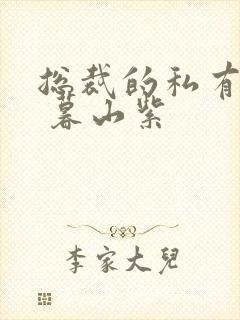 总裁的私有
暮山紫
李家大兒